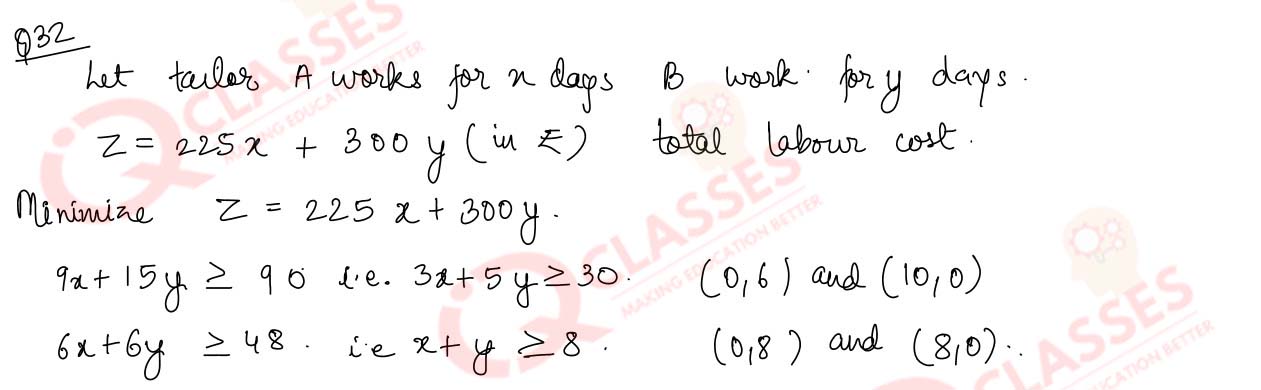 Q32
Let tailor A works for x days B work for y days.
Z = 225x + 300y (in ₹) total labour cost.
Minimize Z = 225x + 300y.
9x + 15y ≥ 90 i.e. 3x + 5y ≥ 30. (0,6) and (10,0)
6x + 6y ≥ 48. i.e x + y ≥ 8. (0,8) and (8,0)..
IQ CLASSES
MAKING EDUCATION BETTER
IQ CLASSES
MAKING EDUCATION BETTER
CLASSES
EDUCATION BETTER